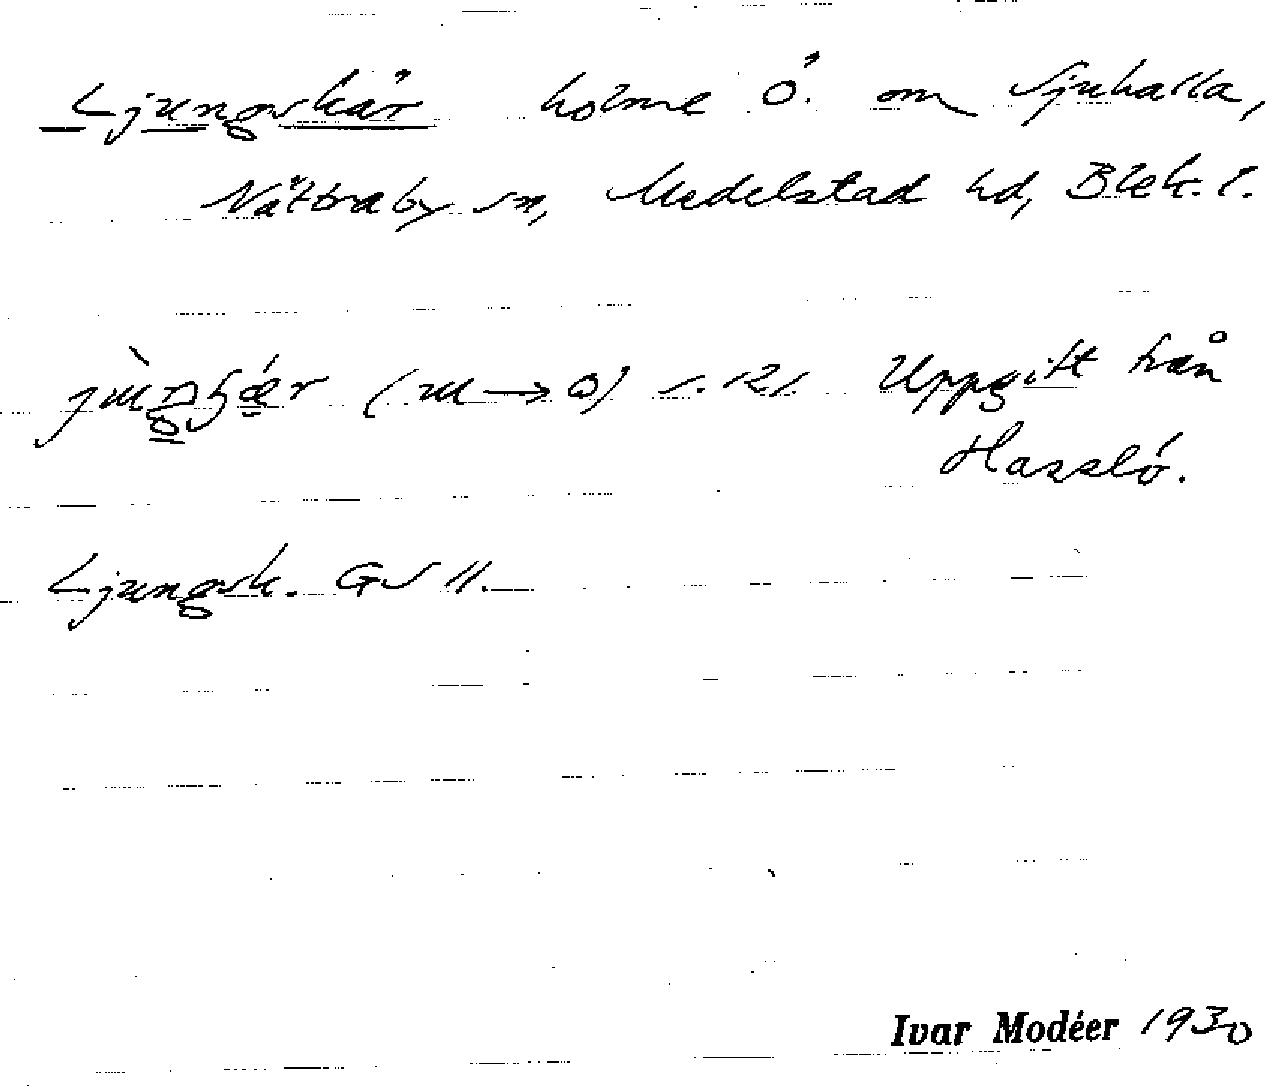 Ljungskär holme Ö. om Sjuhalla,
Nättraby sn, Medelstad hd, Blek. l.
(ɯ → ɷ) s. 121. Uppgift från
Hasslö.
Ljungsk. GS 11.
Ivar Modéer 1930